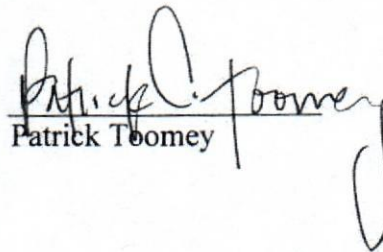 Patrick C. Toomey
Patrick Toomey